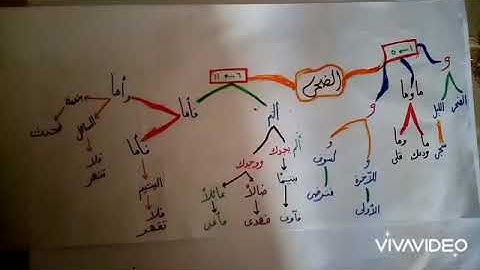 الضحى
١ ← ٥
و
الضحى
الليل
سجى
ما وما
ما
ودعك
وما
قلى
و
و
للآخرة
الأولى
و
لسوف
فترضى
٦ ← ١١
ألم
ألم
يجدك
يتيما
فآوى
ووجدك
ضالاً
فهدى
عائلاً
فأغنى
فأما
فأما
اليتيم
فلا
تقهر
وأما
السائل
فلا
تنهر
بنعمة
فحدث
VIVAVIDEO